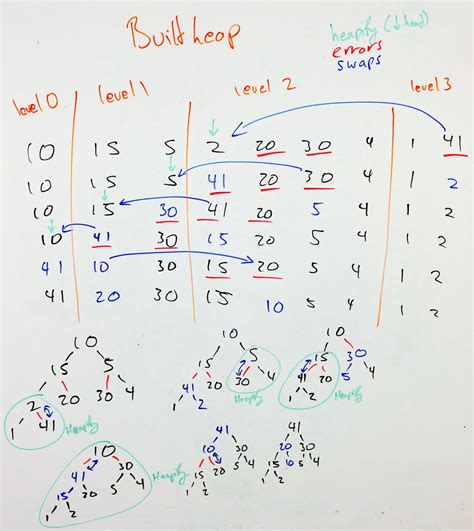 Built heap
heapify (↓ head)
errors
swaps
level 0 level 1 level 2 level 3
10 15 5 2 20 30 4 1 41
10 15 5 41 20 30 4 1 2
10 15 30 41 20 5 4 1 2
10 41 30 15 20 5 4 1 2
41 10 30 15 20 5 4 1 2
41 20 30 15 10 5 4 1 2
10
15 5
2 20 30 4
1 41
Heapify
10
15 5
41 20 30 4
1 2
Heapify
10
15 30
41 20 5 4
1 2
Heapify
10
41 30
15 20 5 4
1 2
Heapify
41
10 30
15 20 5 4
1 2
41
20 30
15 10 5 4
1 2